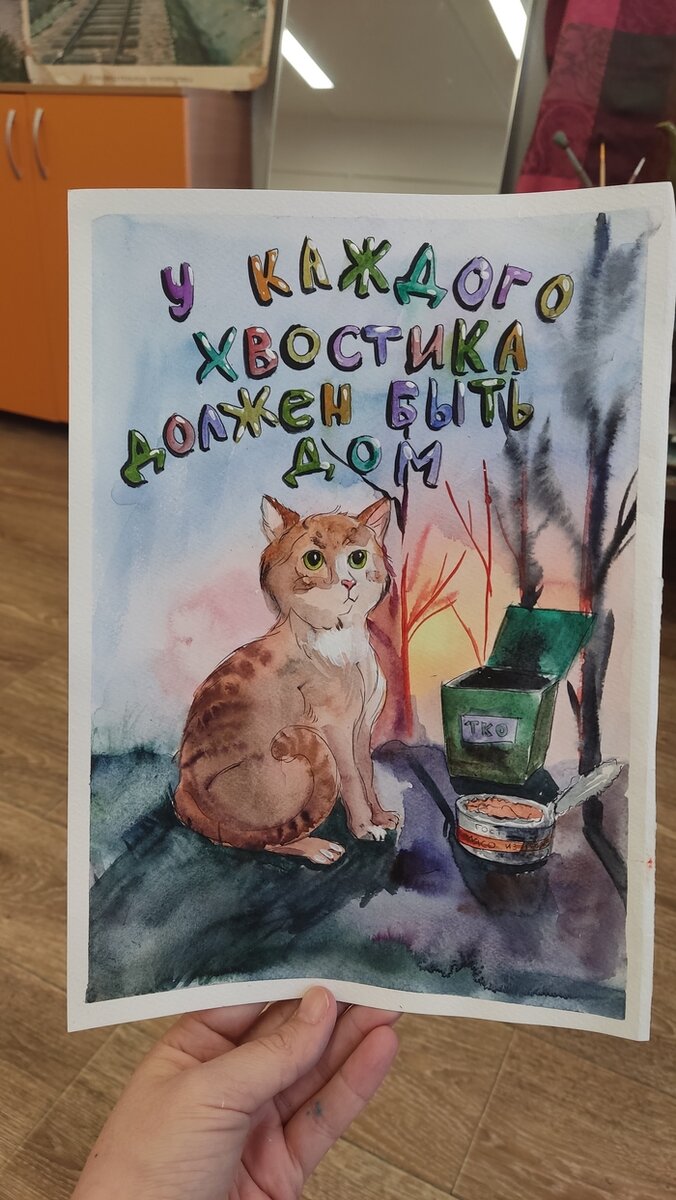 У КАЖДОГО
ХВОСТИКА
ДОЛЖЕН БЫТЬ
ДОМ
ТКО
ГОСТ
ИЗ